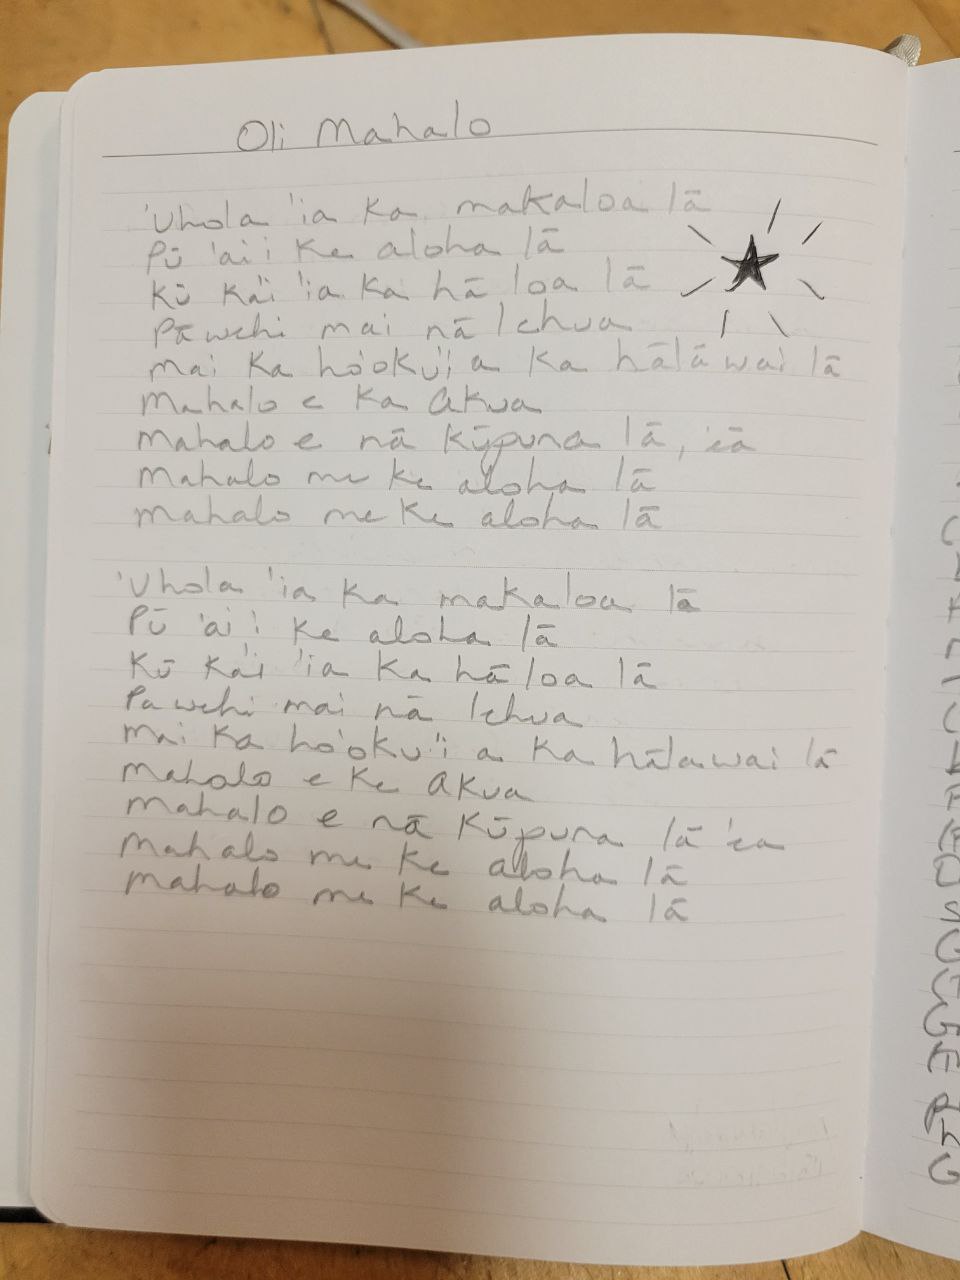 Oli Mahalo
'Uhola 'ia ka makaloa lā
Pū 'ai'i ke aloha lā
Kū ka'i 'ia ka hā loa lā
Pāwehi mai nā lehua
Mai ka ho'oku'i a ka hālāwai lā
Mahalo e ka akua
Mahalo e nā kūpuna lā, 'eā
Mahalo me ke aloha lā
Mahalo me ke aloha lā
'Uhola 'ia ka makaloa lā
Pū 'ai'i ke aloha lā
Kū ka'i 'ia ka hā loa lā
Pawehi mai nā lehua
Mai ka ho'oku'i a ka hālawai lā
Mahalo e ke akua
Mahalo e nā kūpuna lā 'ea
Mahalo me ke aloha lā
Mahalo me ke aloha lā